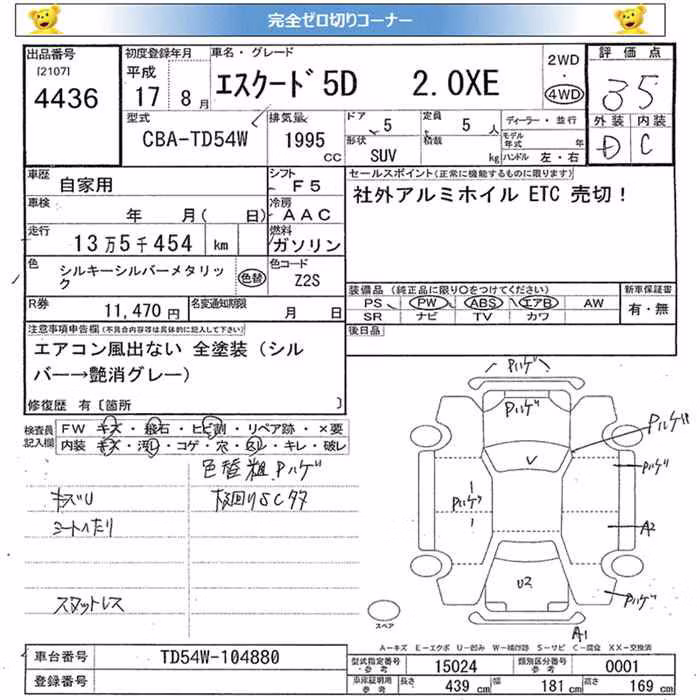 完全ゼロ切りコーナー
出品番号
[2107]
4436
初度登録年月
平成
17 8月
車名・グレード
エスクード 5D 2.0XE
2WD
・
4WD
評価点
35
外装 内装
D C
型式
CBA-TD54W
排気量
1995
CC
ドア
5
定員
5人
形状
SUV
積載
kg
ディーラー・並行
モデル年式 年
ハンドル 左・右
車歴
自家用
シフト
F5
車検
年 月( 日)
冷房
AAC
走行
13万5千454 km
燃料
ガソリン
色
シルキーシルバーメタリック
色替
色コード
Z2S
R券
11,470円
名変通知期限
月 日
セールスポイント(正常に機能するものに限ります)
社外アルミホイル ETC 売切!
装備品(純正品に限り○をつけてください)
PS PW ABS エアB AW
SR ナビ TV カワ
新車保証書
有・無
後日品
注意事項申告欄(不具合内容等は具体的に記入して下さい)
エアコン風出ない 全塗装(シルバー→艶消グレー)
修復歴 有〔箇所 〕
検査員記入欄
FW キズ・飛石・ヒビ割・リペア跡・×要
内装 キズ・汚れ・コゲ・穴・スレ・キレ・破レ
色替粗、Pハゲ
キズU
シートヘたり
スタットレス
Pハゲ
Pハゲ
Pハゲ
Pハゲ
Pハゲ
A2
U2
Pハゲ
A1
スペア
A-キズ E-エクボ U-凹み W-補修跡 S-サビ C-腐食 XX-交換済
車台番号
TD54W-104880
登録番号
型式指定番号
参考
15024
類別区分番号
参考
0001
車庫証明用
参考
長さ
439 cm
幅
181 cm
高さ
169 cm